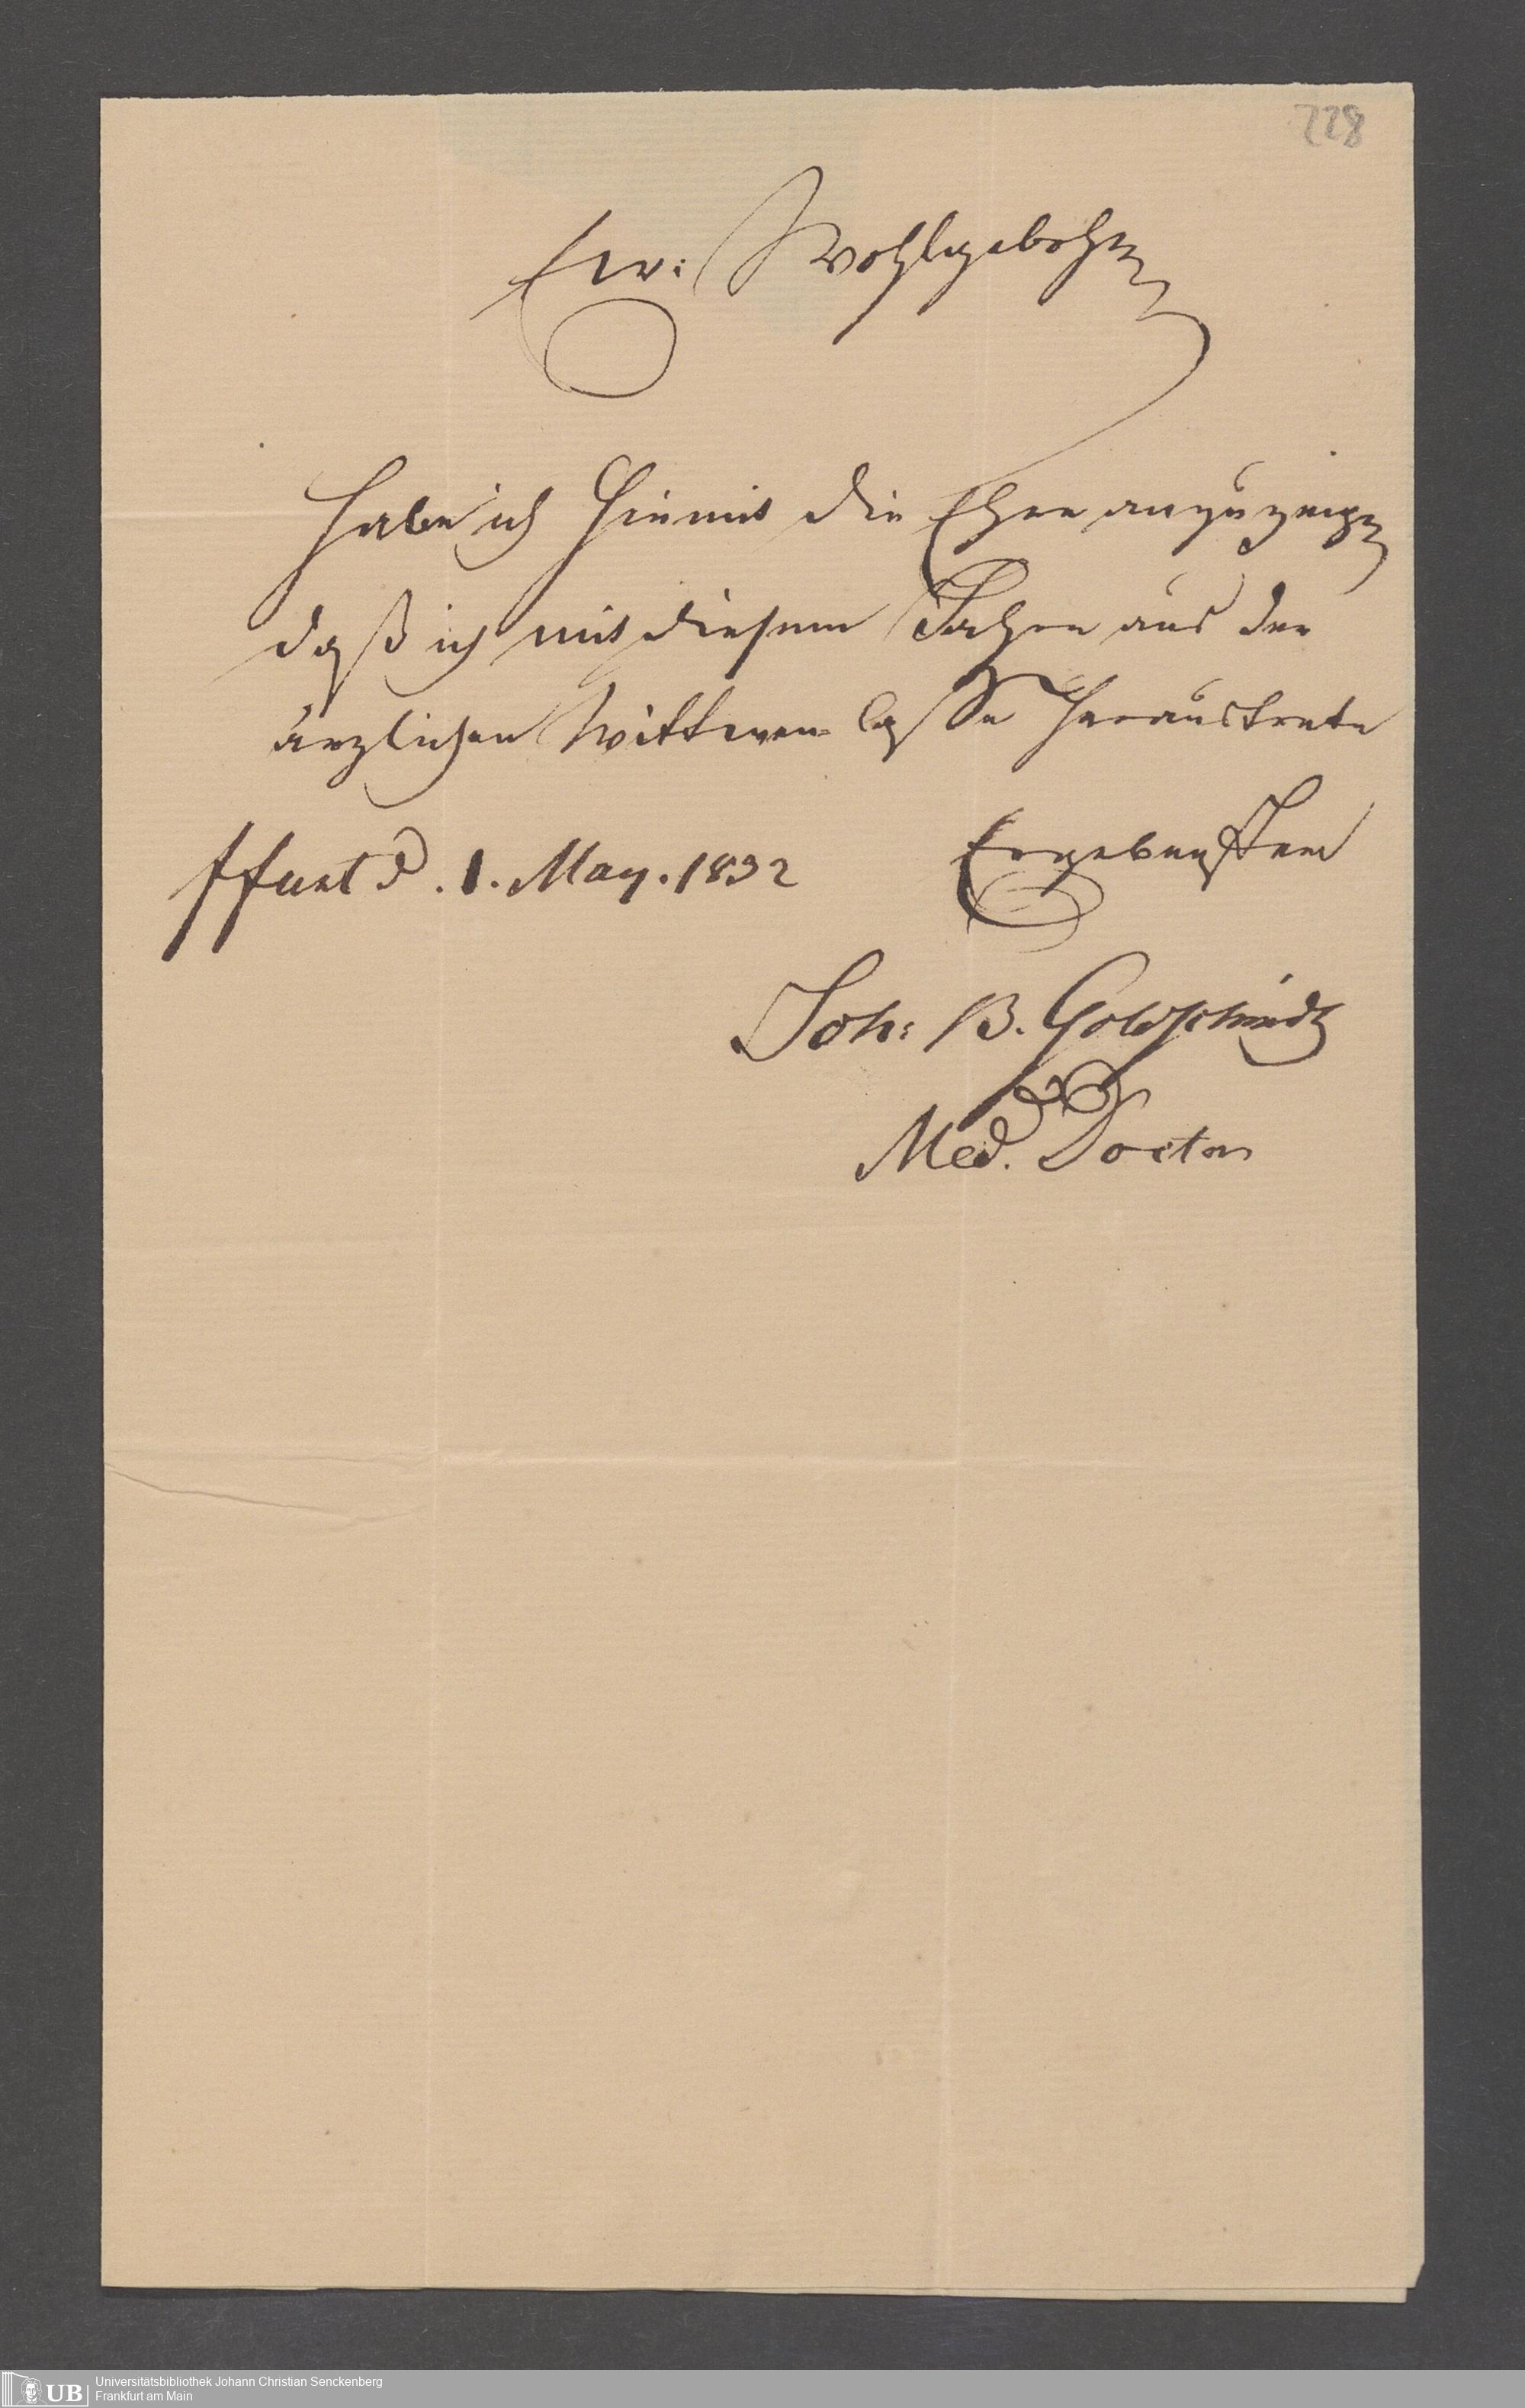 228
Ew: Wohlgebohrn
habe ich hiermit die Ehre anzuzeigen
daß ich mit diesem Jahre aus der
ärzlichen Wittwen-Casse heraustrete
ffurt d. 1. May. 1832
Ergebenster
Joh: B. Goldschmidt
Med. Doctor
UB
Universitätsbibliothek Johann Christian Senckenberg
Frankfurt am Main